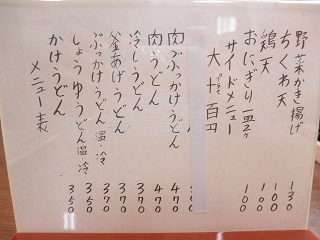 メニュー表
かけうどん 350
しょうゆうどん 温 冷 350
ぶっかけうどん 温・冷 370
釜あげうどん 370
冷しうどん 370
肉うどん 470
肉ぶっかけうどん 470
大 十百円
サイドメニュー
おにぎり一皿2ケ 100
鶏天 100
ちくわ天 100
野菜かき揚げ 130